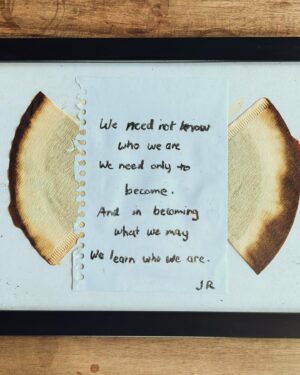 We need not know
who we are
We need only to
become.
And in becoming
what we may
We learn who we are.
JR